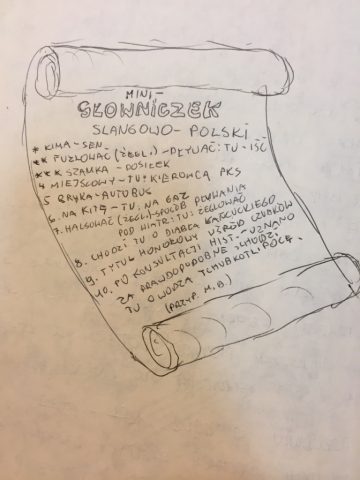 MINI-
SŁOWNICZEK
SLANGOWO-POLSKI
* KIMA-SEN
** PUZLOWAĆ (ŻEGL.) - PŁYWAĆ: TU-IŚĆ
*** SZAMKA - POSIŁEK
4 MIEJSCOWY-TU: KIEROWCA PKS
5 BRYKA-AUTOBUS
6. NA KITĘ-TU: NA GAZ
7. HALSOWAĆ (ŻEGL.)-SPOSÓB PŁYWANIA
POD WIATR: TU:
8. CHODZI TU O DIABŁA ŁAŃCUCKIEGO
9. TYTUŁ HONOROWY WŚRÓD CZUBKÓW
10. PO KONSULTACJI HIST.-UZNANO
ZA PRAWDOPODOBNE - CHODZI
TU O WODZA TCHUBKOTLIPOCĘ.
(PRZYP. M.B.)